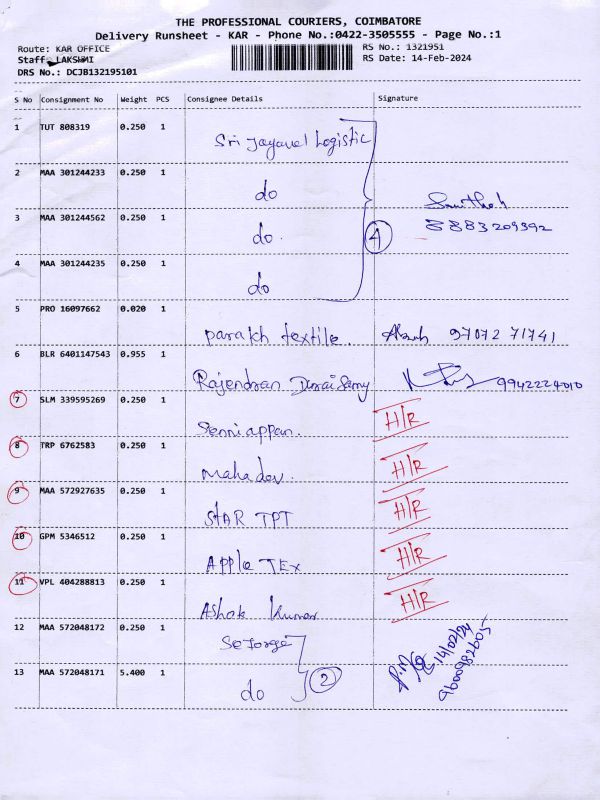 THE PROFESSIONAL COURIERS, COIMBATORE
Delivery Runsheet - KAR - Phone No.:0422-3505555 - Page No.:1
Route: KAR OFFICE
RS No.: 1321951
Staff: LAKSHMI
RS Date: 14-Feb-2024
DRS No.: DCJB132195101
S No Consignment No Weight PCS Consignee Details Signature
1 TUT 808319 0.250 1 Sri Jayavel Logistic
2 MAA 301244233 0.250 1 do
3 MAA 301244562 0.250 1 do. 8883209392
4 MAA 301244235 0.250 1 do
4
5 PRO 16097662 0.020 1 parakh textile. 97072 71741
6 BLR 6401147543 0.955 1 Rajendran Duraisamy 9942224010
7 SLM 339595269 0.250 1 Senniappan. H/R
8 TRP 6762583 0.250 1 mahadev. H/R
9 MAA 572927635 0.250 1 StAR TPT H/R
10 GPM 5346512 0.250 1 Apple TEx H/R
11 VPL 404288813 0.250 1 Ashok Kumar H/R
12 MAA 572048172 0.250 1 SeJorge
13 MAA 572048171 5.400 1 do
2
14/02/24
9600982605